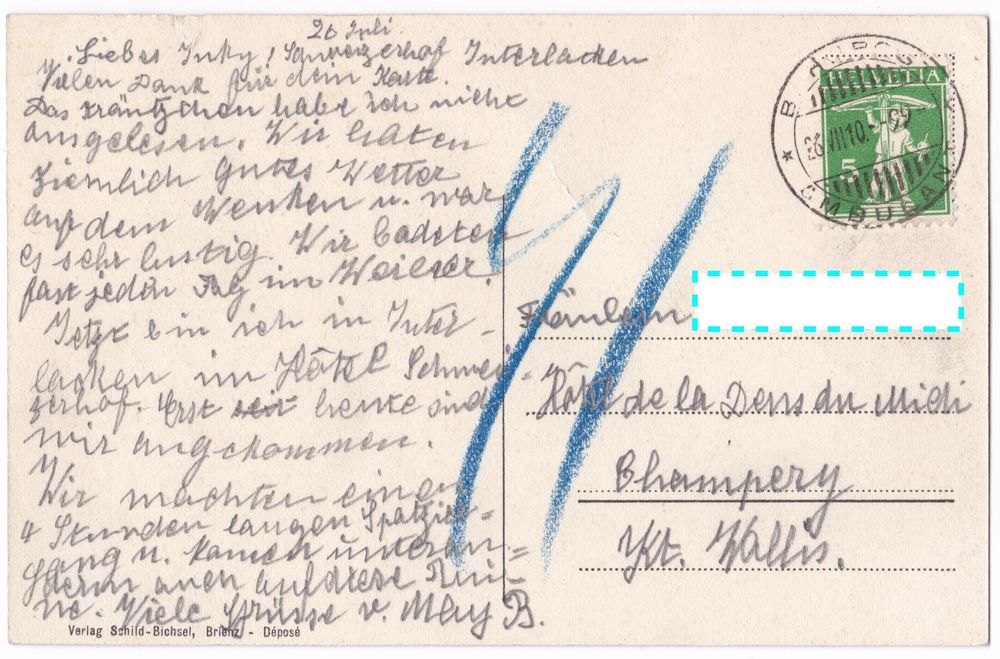 26 Juli.
Liebes Inky! Schweizerhof Interlacken
Vielen Dank für dem Karte.
Das Kräntzchen habe ich nicht
ausgelesen. Wir hatten
ziemlich gutes Wetter
auf dem Wenken u. war
es sehr lustig. Wir badeten
fast jeden Tag im Weiher.
Jetzt bin ich in Inter-
lacken im Hôtel Schwei-
zerhof. Erst seit heute sind
wir angekommen.
Wir machten einen
4 Stunden langen Spatzier=
gang u. kamen unteran=
derm auch auf diese Rui-
ne. Viele Grüsse v. May B.
Verlag Schild-Bichsel, Brienz - Déposé
HELVETIA
5
26.VII.10.
AMBULANT
Fräulein
Hôtel de la Dens du Midi
Champery
Kt. Wallis.